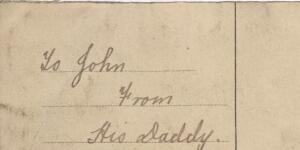 To John
From
His Daddy.